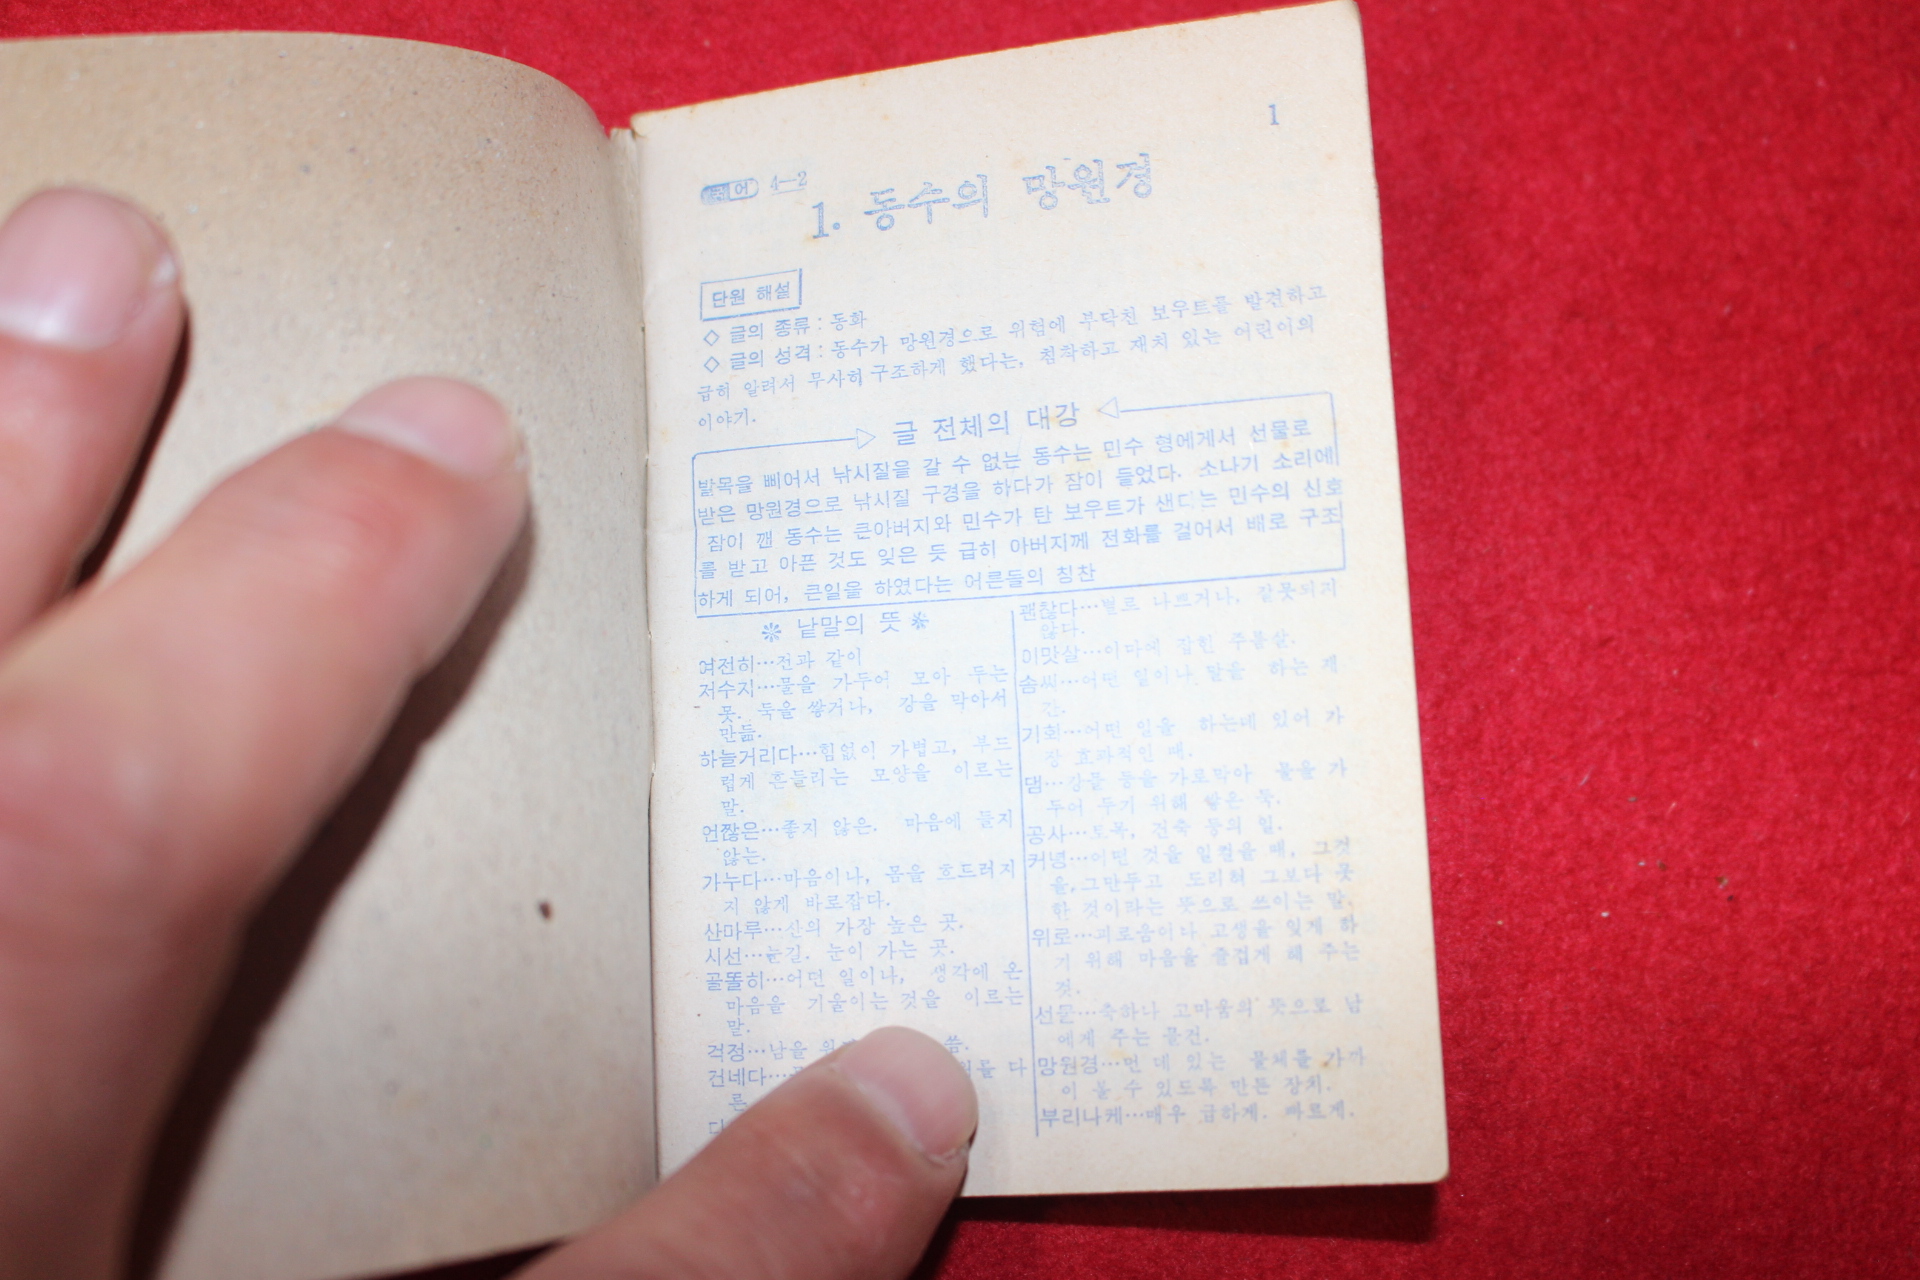 1
국어 4—2
1. 동수의 망원경
단원 해설
◇ 글의 종류 : 동화
◇ 글의 성격 : 동수가 망원경으로 위험에 부닥친 보우트를 발견하고
급히 알려서 무사히 구조하게 했다는, 침착하고 재치 있는 어린이의
이야기.
글 전체의 대강
발목을 삐어서 낚시질을 갈 수 없는 동수는 민수 형에게서 선물로
받은 망원경으로 낚시질 구경을 하다가 잠이 들었다. 소나기 소리에
잠이 깬 동수는 큰아버지와 민수가 탄 보우트가 샌다는 민수의 신호
를 받고 아픈 것도 잊은 듯 급히 아버지께 전화를 걸어서 배로 구조
하게 되어, 큰일을 하였다는 어른들의 칭찬
※ 낱말의 뜻 ※
여전히…전과 같이
저수지…물을 가두어 모아 두는
못. 둑을 쌓거나, 강을 막아서
만듦.
하늘거리다…힘없이 가볍고, 부드
럽게 흔들리는 모양을 이르는
말.
언짢은…좋지 않은. 마음에 들지
않는.
가누다…마음이나, 몸을 흐트러지
지 않게 바로잡다.
산마루…산의 가장 높은 곳.
시선…눈길. 눈이 가는 곳.
골똘히…어떤 일이나, 생각에 온
마음을 기울이는 것을 이르는
말.
걱정…남을 씀.
건네다… 를 다
른
괜찮다…별로 나쁘거나, 잘못되지
않다.
이맛살…이마에 잡힌 주름살.
솜씨…어떤 일이나 말을 하는 재
간.
기회…어떤 일을 하는데 있어 가
장 효과적인 때.
댐…강물 등을 가로막아 물을 가
두어 두기 위해 쌓은 둑.
공사…토목, 건축 등의 일.
커녕…어떤 것을 일컬을 때, 그것
을 그만두고 도리혀 그보다 못
한 것이라는 뜻으로 쓰이는 말.
위로…괴로움이나 고생을 잊게 하
기 위해 마음을 즐겁게 해 주는
것.
선물…축하나 고마움의 뜻으로 남
에게 주는 물건.
망원경…먼 데 있는 물체를 가까
이 볼 수 있도록 만든 장치.
부리나케…매우 급하게. 빠르게.